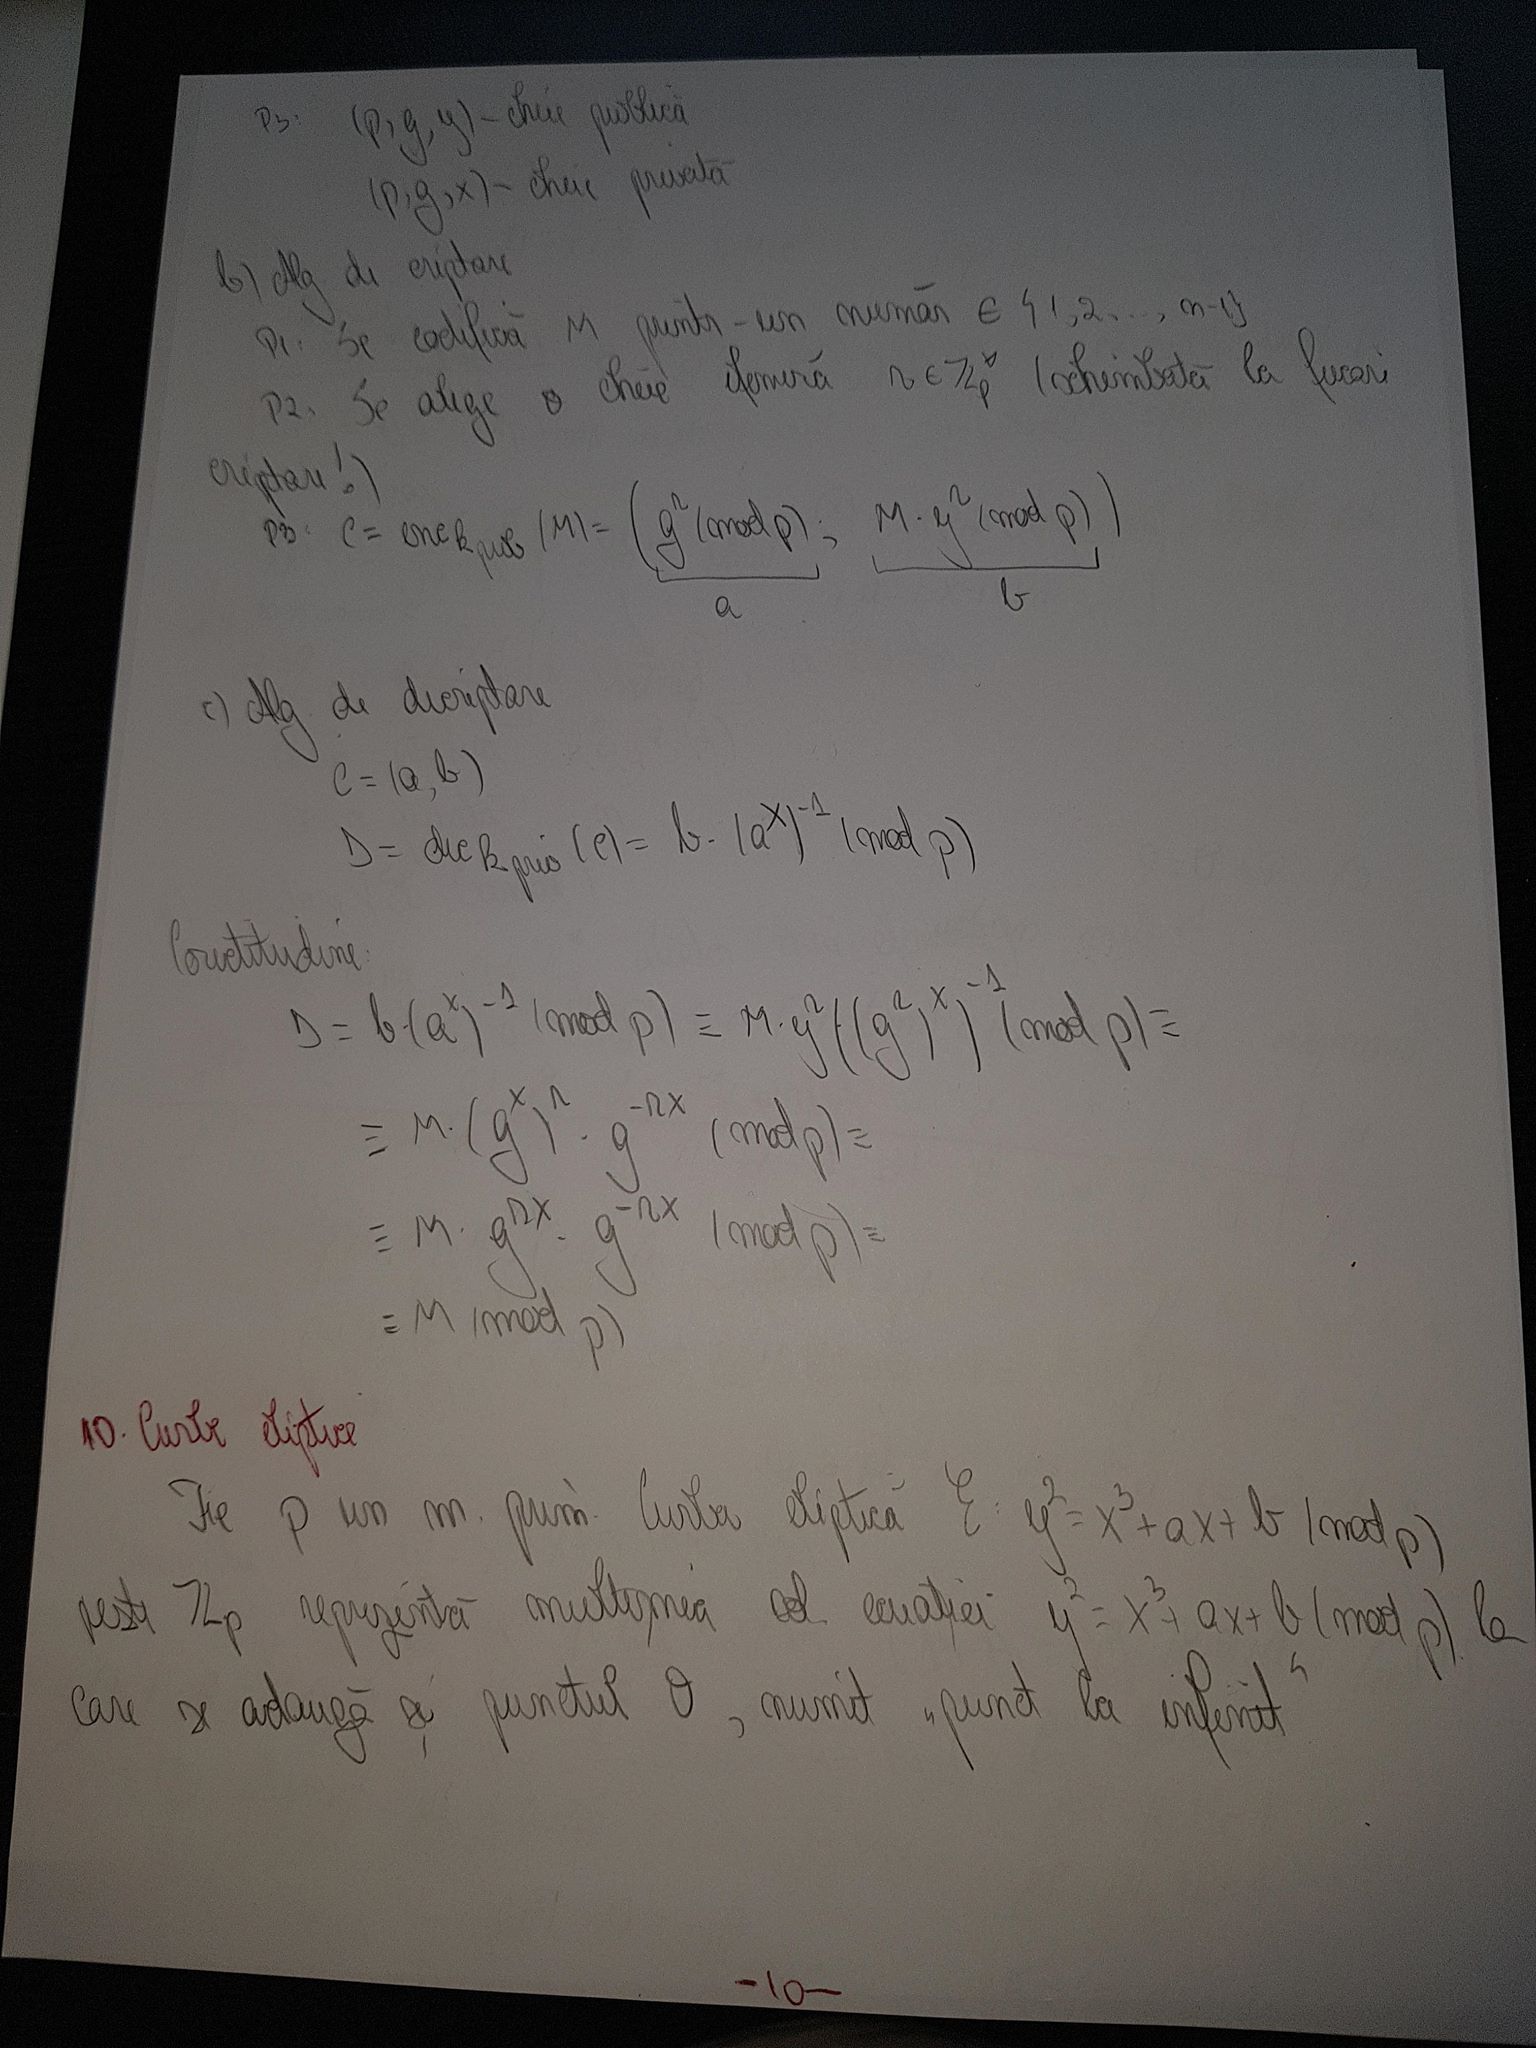 P3. (p, g, y) - cheie publică
(p, g, x) - cheie privată
b) Alg de criptare
P1. Se codifică M printr-un număr ∈ {1, 2, ..., n-1}
P2. Se alege o cheie efemeră r ∈ ℤp* (schimbată la fiecare
criptare!)
P3. C = enc k pub (M) = (g^r (mod p); M · y^r (mod p))
a b
c) Alg. de decriptare
C = (a, b)
D = dec k priv (C) = b · (a^x)^-1 (mod p)
Corectitudine:
D = b · (a^x)^-1 (mod p) ≡ M · y^r · ((g^r)^x)^-1 (mod p) ≡
≡ M · (g^x)^r · g^-rx (mod p) ≡
≡ M · g^rx · g^-rx (mod p) ≡
≡ M (mod p)
10. Curbe eliptice
Fie p un nr. prim. Curba eliptică ℰ: y² = x³ + ax + b (mod p)
peste ℤp reprezintă mulțimea sol ecuației y² = x³ + ax + b (mod p) la
care se adaugă și punctul O, numit „punct la infinit"
-10-